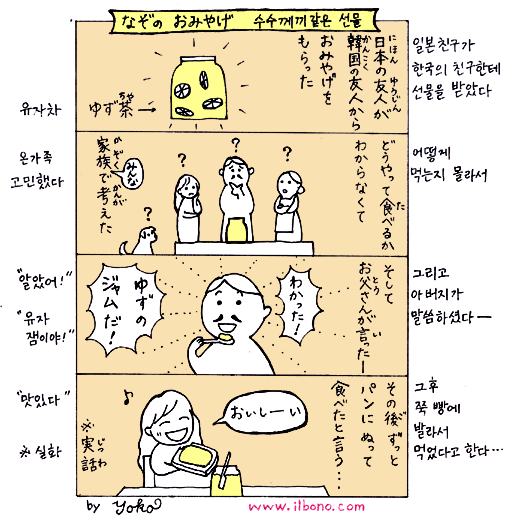 なぞの おみやげ 수수께끼같은 선물
日本の友人が
韓国の友人から
おみやげを
もらった
ゆず茶→
일본친구가
한국의 친구한테
선물을 받았다
유자차
どうやって食べるか
わからなくて
家族で考えた
みんな
?
?
?
?
어떻게
먹는지 몰라서
온가족
고민했다
そして
お父さんが言ったー
わかった!
ゆずの
ジャムだ!
그리고
아버지가
말씀하셨다ー
"알았어!"
"유자
잼이야!"
その後ずっと
パンにぬって
食べたと言う…
おいしーい
♪
※実話
그후
쭉 빵에
발라서
먹었다고 한다…
"맛있다"
※실화
by Yoko
www.ilbono.com